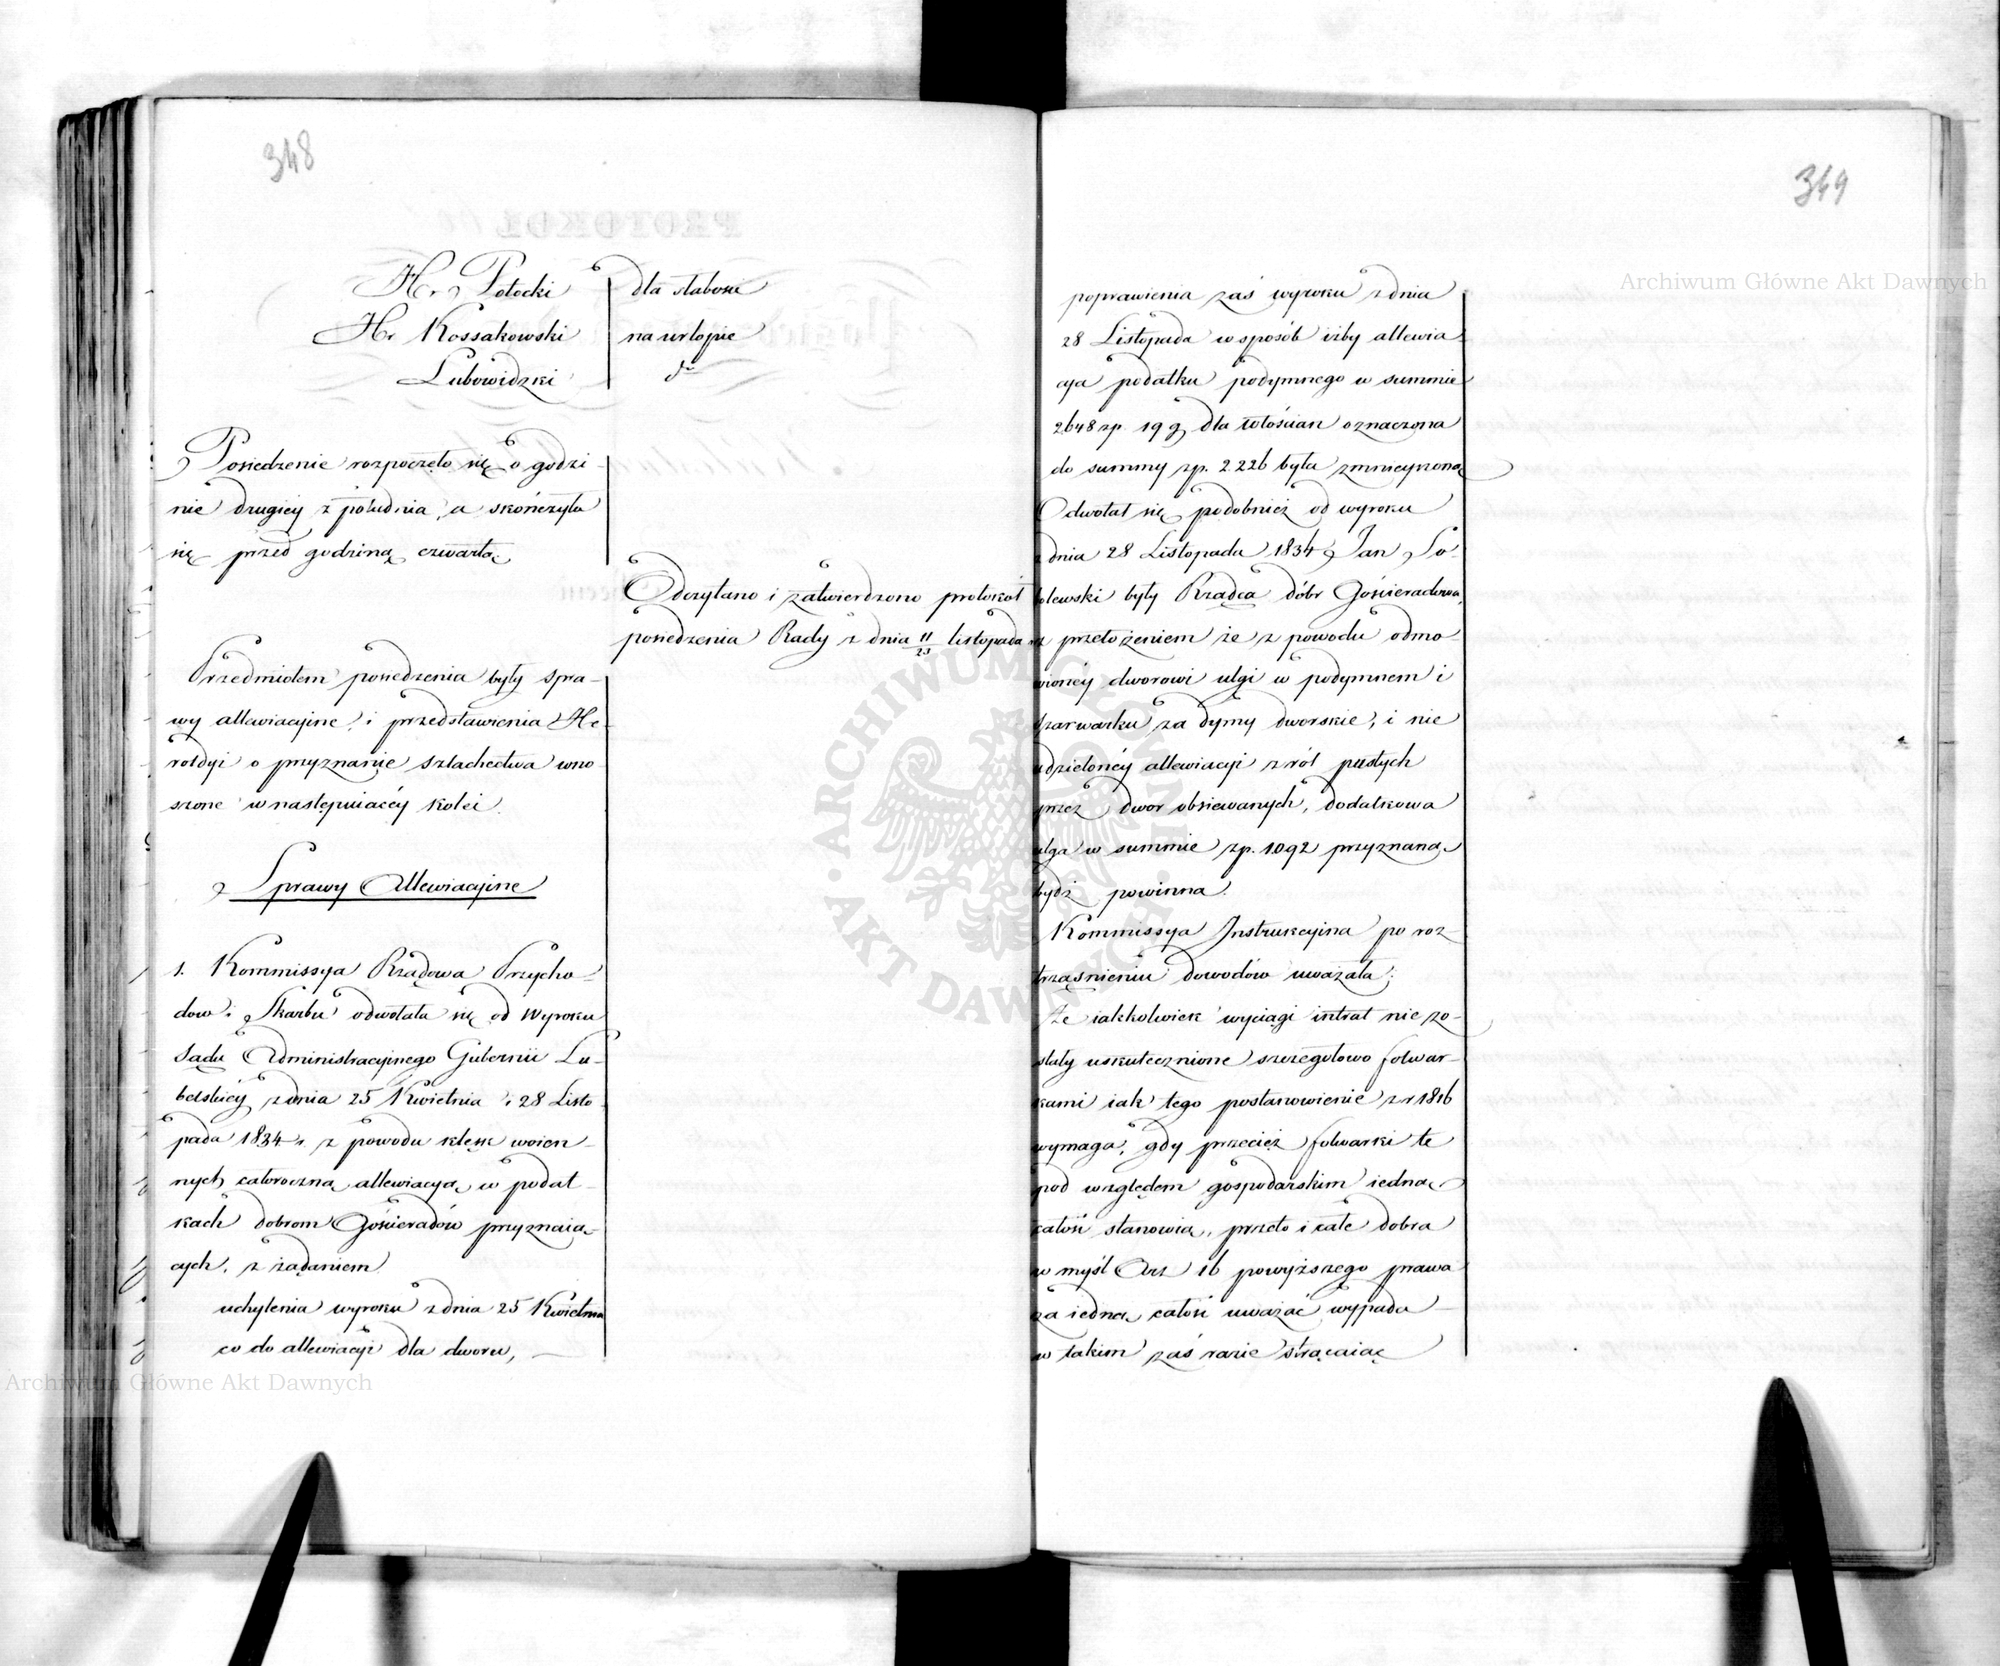 348
Hr. Potocki dla słabości
Hr. Kossakowski na urlopie
Lubowidzki dto
Posiedzenie rozpoczęło się o godzi-
nie drugiey z południa, a skończyło
się przed godziną czwartą
Odczytano i zatwierdzono protokół
posiedzenia Rady z dnia 11/23 listopada
Przedmiotem posiedzenia były spra-
wy allewiacyjne, i przedstawienia He-
roldyi o przyznanie szlachectwa wno-
szone w następuiącéy kolei.
Sprawy Allewiacyjne
1. Kommissya Rządowa Przycho-
dów i Skarbu odwołała się od Wyroku
Sądu Administracyjnego Gubernii Lu-
belskiéy z dnia 25 Kwietnia i 28 Listo-
pada 1834 r. z powodu klęsk woien-
nych całoroczną allewiacyą w podat-
kach dobrom Gościeradów przyznaią-
cych, z żądaniem
uchylenia wyroku z dnia 25 Kwietnia
co do allewiacyi dla dworu,
349
Archiwum Główne Akt Dawnych
poprawienia zaś wyroku z dnia
28 Listopada w sposób iżby allewia-
cya podatku podymnego w summie
2648 zp. 19 g dla włościan oznaczona
do summy zp. 2226 była zmnieyszoną
Odwołał się podobnież od wyroku
z dnia 28 Listopada 1834 r. Jan So-
bolewski były Rządca dóbr Gościeradowa,
z przełożeniem że z powodu odmó-
wioney dworowi ulgi w podymnem i
szarwarku za dymy dworskie, i nie
udzielonéy allewiacyi z ról pustych
przez dwór obsiewanych, dodatkowa
ulga w summie zp. 1092 przyznaną
bydź powinna.
Kommissya Instrukcyina po roz-
trząśnieniu dowodów uważała;
Że iakkolwiek wyciągi intrat nie zo-
stały uskutecznione szczegółowo folwar-
kami iak tego postanowienie z r 1816
wymaga, gdy przecież folwarki te
pod względem gospodarskim iedną
całość stanowią, przeto i całe dobra
w myśl Art 16 powyższego prawa
za iedną całość uważać wypada
w takim zaś razie strącaiąc
ARCHIWUM GŁÓWNE · AKT DAWNYCH ·
Archiwum Główne Akt Dawnych